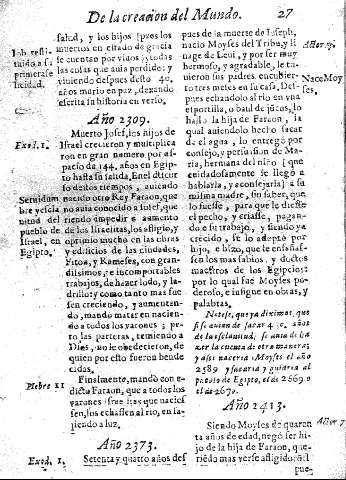 De la creacion del Mundo. 27
salud, y los hijos [pres los
muertos en estado de gracia
se cuentan por vidos] y todas
las cosas que auia perdido; y
viniendo despues desto 40.
años murio en paz, dexando
escrita su historia en verso.
Año 2309.
Exod. 1.
Muerto Josef, los hijos de
Israel crecieron y multiplica
ron en gran numero, por es-
pacio de 144. años en Egip-
to hasta su salida. En el discur
so destos tiempos, auiendo
nacido otro Rey Faraon, que
no auia conocido a Iosef, que
del riendo impedir el aumento
de los Israelitas, los afligio, y
oprimio mucho en las obras
y edificios de las ciudades,
Fiton, y Rameses, con gran-
dissimos, e incomportables
trabajos, de hazer lodo, y la-
drillo: y como tanto mas fues
sen creciendo, y aumentan-
do, mando matar en nacien-
do a todos los varones; pe-
ro las parteras, temiendo a
Dios, no le obedecieron, de
quien por esto fueron bende
cidas.
Finalmente, mandò con e-
dicto Faraon, que a todos los
varones que nacies
sen, los echassen al rio, en sa-
liendo a luz.
Año 2373.
Exod. 1.
Setenta y quatro años des
pues de la muerte de Ioseph,
nacio Moyses del Tribu, y li
nage de Leui, y por ser muy
hermoso, y agradable, le tu-
uieron sus padres encubier-
to tres meses en su casa. Des-
pues echandolo al rio en vna
esportilla, o baul de juncos, lo
hallò la hija de Faraon, la
qual auiendolo hecho sacar
de el agua, lo entregò por
consejo, y persuasion de Ma-
ria, hermana del niño [que
cuidadosamente se llegò a
hablarla, y aconsejarla] a su
misma madre, sin saber, que
lo fuesse, para que le diesse
el pecho, y criasse, pagan-
do e su trabajo, y siendo ya
crecido, se lo adoptò por
hijo, e hizo, que le enseñas-
sen los mas sabios, y doctos
maestros de los Egipcios:
por lo qual fue Moyses po-
deroso, e insigne en obras, y
palabras.
Notese, que ya diximos, que
si se auian de sacar 430. años
de la esclauitud, se auia de ha
zer la cuenta de otra manera,
y assi naceria Moyses el año
2589 y sacaria y guiaria al
pueblo de Egipto, el de 2669 o
el de 2670.
Año 2413.
Siendo Moyses de quaren
ta años de edad, negò ser hi-
jo de la hija de Faraon, que-
riendo mas verse afligido
pue-